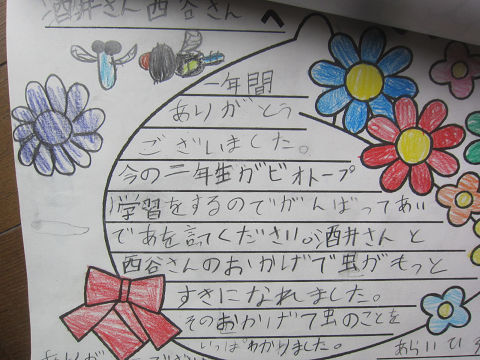 酒井さん 西谷さん へ
一年間
ありがとう
ございました。
今の二年生がビオトープ
学習をするのでがんばってあい
であを言ってください。酒井さんと
西谷さんのおかげで虫がもっと
すきになれました。
そのおかげで虫のことを
いっぱいわかりました。
あらいひ